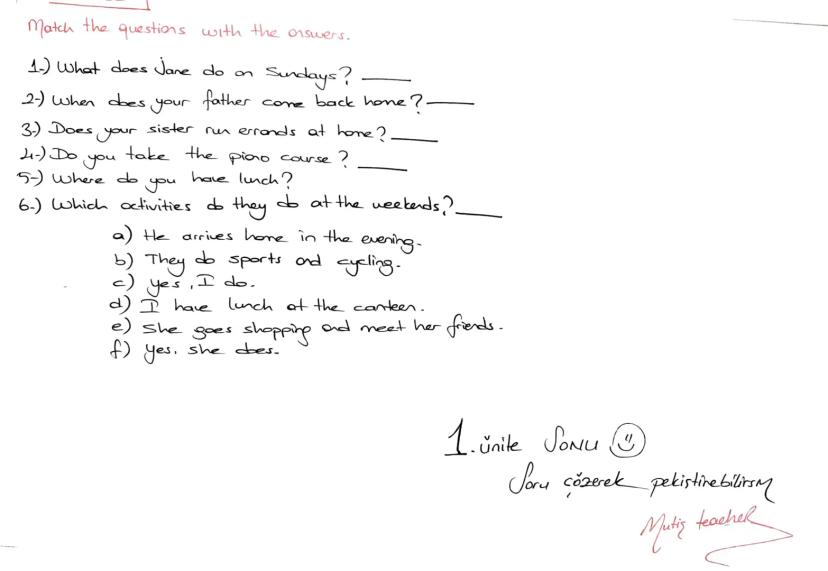 Match the questions with the answers.
1-) What does Jane do on Sundays? ____
2-) When does your father come back home? ____
3-) Does your sister run errands at home? ____
4-) Do you take the piano course? ____
5-) Where do you have lunch?
6-) Which activities do they do at the weekends? ____
a) He arrives home in the evening.
b) They do sports and cycling.
c) yes, I do.
d) I have lunch at the canteen.
e) She goes shopping and meet her friends.
f) yes, she does.
1. ünite SONU
Soru çözerek pekiştirebilirsin
Mutiş teacher